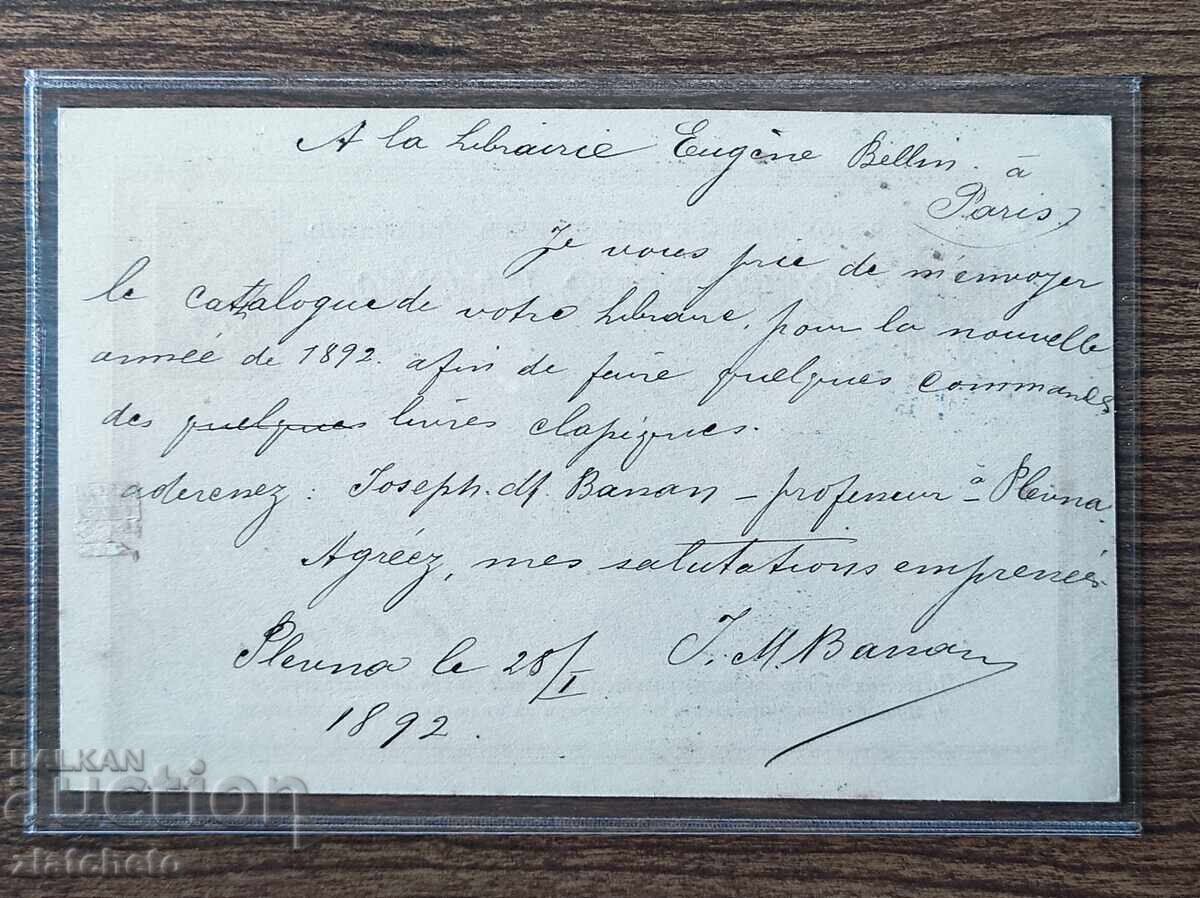 A la librairie Eugène Bellin à
Paris
Je vous prie de m'envoyer
le catalogue de votre libraire, pour la nouvelle
année de 1892. afin de faire quelques commandes
des quelques livres clapiques.
: Joseph. M. Banan – professeur à Plevna.
Agréez, mes salutations
Plevna le 28/I
1892.
J. M. Banan
BALKAN
auction
zlatcheto